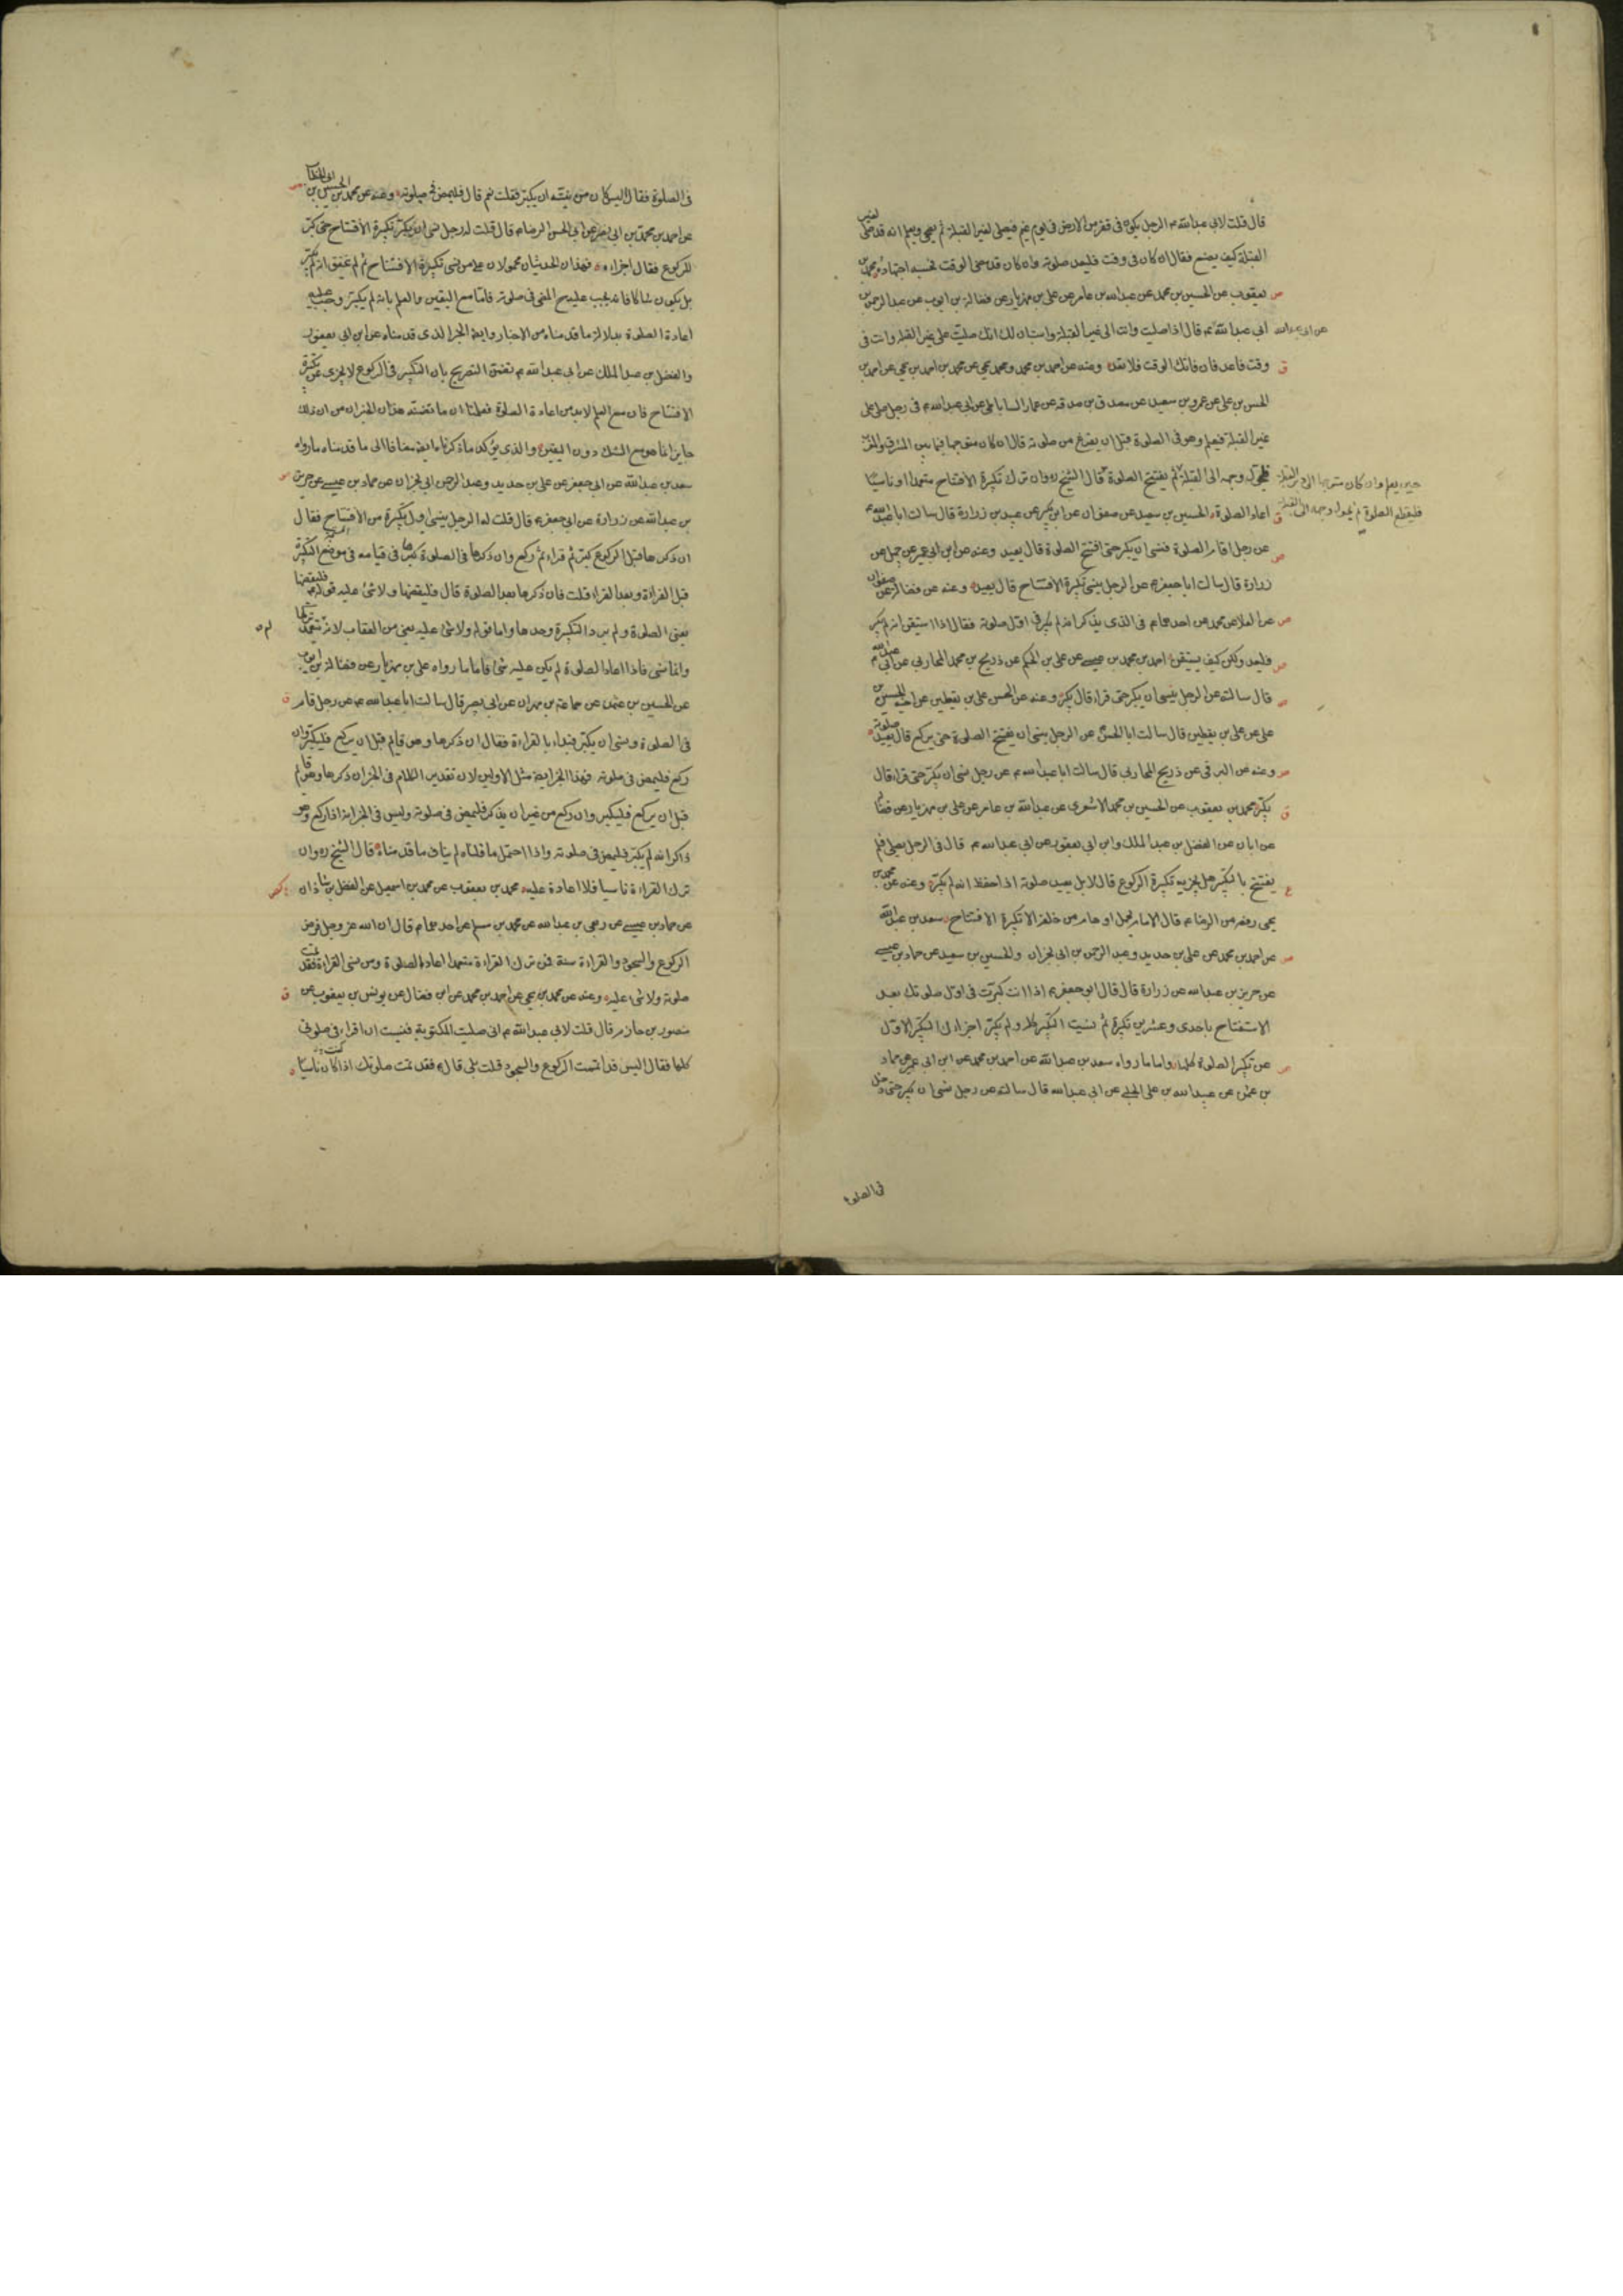 قال قلت لابي عبدالله ع الرجل يكون في قفر من الارض في يوم غيم فيصلي لغير القبلة ثم يصحي ويعلم انه قد صلى لغير
القبلة كيف يصنع فقال ان كان في وقت فليعد صلوته وان كان قد مضى الوقت فحسبه اجتهاده محمد بن
يعقوب عن الحسين بن محمد عن عبدالله بن عامر عن علي بن مهزيار عن فضالة بن ايوب عن عبدالرحمن بن
ابي عبدالله عن ابي عبدالله ع قال اذا صليت وانت الى غير القبلة واستبان لك انك صليت على غير القبلة وانت في
وقت فاعد فان فاتك الوقت فلا تعد وعنه عن احمد بن محمد ومحمد بن يحيى عن محمد بن احمد بن يحيى عن احمد بن
الحسن بن علي عن عمرو بن سعيد عن مصدق بن صدقه عن عمار الساباطي عن ابي عبدالله ع في رجل صلى على
غير القبلة فيعلم وهو في الصلوة قبل ان يفرغ من صلوته قال ان كان متوجها فيما بين المشرق والمغرب
فليحول وجهه الى القبلة حين يعلم وان كان متوجها الى دبر القبلة
فليقطع الصلوة ثم يحول وجهه الى القبلة
ثم يفتتح الصلوة قال الشيخ ره وان ترك تكبرة الافتتاح متعمدا او ناسيا
اعاد الصلوة الحسين بن سعيد عن صفوان عن ابن بكير عن عبيد بن زرارة قال سالت ابا عبدالله ع
عن رجل اقام الصلوة فنسي ان يكبر حتى افتتح الصلوة قال يعيد وعنه عن ابن ابي عمير عن جميل عن
زرارة قال سالت ابا جعفر ع عن الرجل ينسى تكبيرة الافتتاح قال يعيد وعنه عن فضالة عن صفوان
عن العلا عن محمد عن احدهما ع في الذي يذكر انه لم يكبر في اول صلوته فقال اذا استيقن انه لم يكبر
فليعد ولكن كيف يستيقن احمد بن محمد بن عيسى عن علي بن الحكم عن ذريح بن محمد المحاربي عن ابي عبدالله ع
قال سالته عن الرجل ينسى ان يكبر حتى قراء قال يكبر وعنه عن الحسن علي بن يقطين عن اخيه الحسين بن
علي عن علي بن يقطين قال سالت ابا الحسن عن الرجل ينسى ان يفتتح الصلوة حتى يركع قال يعيد صلوته
وعنه عن البرقي عن ذريح المحاربي قال سالت ابا عبدالله ع عن رجل نسي ان يكبر حتى قراء قال
يكبر محمد بن يعقوب عن الحسين بن محمد الاشعري عن عبدالله بن عامر عن علي بن مهزيار عن فضالة
عن ابان عن الفضل بن عبدالملك وابن ابي يعفور عن ابي عبدالله ع قال في الرجل يصلي فلم
يفتتح بالتكبير هل يجزيه تكبيرة الركوع قال لا بل يعيد صلوته اذا حفظ انه لم يكبر وعنه عن محمد بن
يحيى رفعه عن الرضا ع قال الامام يحمل اوهام من خلفه الا تكبيرة الافتتاح سعد بن عبدالله
عن احمد بن محمد عن علي بن حديد وعبد الرحمن بن ابي نجران والحسين بن سعيد عن حماد بن عيسى
عن حريز بن عبدالله عن زرارة قال قال ابو جعفر ع اذا انت كبرت في اول صلوتك بعد
الاستفتاح باحدى وعشرين تكبيرة ثم نسيت التكبير كله ولم تكبر اجزاك التكبير الاول
عن تكبير الصلوة كلها واما ما رواه سعد بن عبدالله عن احمد بن محمد عن ابن ابي عمير عن حماد
بن عثمن عن عبيدالله بن علي الحلبي عن ابي عبدالله قال سالته عن رجل نسي ان يكبر حتى دخل
في الصلوة
في الصلوة فقال اليس كان من نيته ان يكبر فقلت نعم قال فليمض في صلوته وعنه عن محمد بن الحسين بن ابي الخطاب
عن احمد بن محمد بن ابي نصر عن ابي الحسن الرضا ع قال قلت له رجل نسي ان يكبر تكبيرة الافتتاح حتى كبر
للركوع فقال اجزاه فهذان الحديثان محمولان على من نسي تكبيرة الافتتاح ثم لم يتحقق انه لم يكبر
بل يكون شاكا فانه يجب عليه ح المضي في صلوته فاما مع اليقين والعلم بانه لم يكبر وجب عليه
اعادة الصلوة بدلالة ما قدمناه من الاخبار وايضا الخبر الذي قدمناه عن ابن ابي يعفور
والفضل بن عبدالملك عن ابي عبدالله ع تضمن التصريح بان التكبير في الركوع لا يجزي عن تكبيرة
الافتتاح فان مع العلم لابد من اعادة الصلوة فعلمنا ان ما تضمنه هذان الخبران من ان ذلك
جايز انما هو مع الشك دون اليقين والذي يؤكد ما ذكرناه ايضا مضافا الى ما قدمناه ما رواه
سعد بن عبدالله عن ابي جعفر عن علي بن حديد وعبد الرحمن ابي نجران عن حماد بن عيسى عن حريز
بن عبدالله عن زرارة عن ابي جعفر ع قال قلت له الرجل ينسى اول تكبيرة من الافتتاح فقال
ان ذكرها قبل الركوع كبر ثم قراء ثم ركع وان ذكرها في الصلوة كبرها في قيامه في موضع التكبير
قبل القراءة وبعد القراءة قلت فان ذكرها بعد الصلوة قال فليقضها ولا شئ عليه قوله فليقضها
يعني الصلوة ولم يرد التكبيرة وحدها واما قوله ولا شئ عليه يعني من العقاب لانه لم يتعمد تركها
وانما نسي فاذا اعاد الصلوة لم يكن عليه شئ فاما ما رواه علي بن مهزيار عن فضالة بن ايوب
عن الحسين بن عثمن عن سماعة بن مهران عن ابي بصير قال سالت ابا عبدالله ع عن رجل قام
في الصلوة ونسي ان يكبر فبداء بالقراءة فقال ان ذكرها وهو قايم قبل ان يركع فليكبر وان
ركع فليمض في صلوته فهذا الخبر ايضا مثل الاولين لان تقدير الكلام في الخبر ان ذكرها وهو قايم
قبل ان يركع فليكبر وان ركع من غير ان يذكر فليمض في صلوته وليس في الخبر انه اذا ركع وهو
ذاكر انه لم يكبر فليمض في صلوته واذا احتمل ما قلناه لم يناف ما قدمناه قال الشيخ ره وان
ترك القراءة ناسيا فلا اعادة عليه محمد بن يعقوب عن محمد بن اسمعيل عن الفضل بن شاذان
عن حماد بن عيسى عن ربعي بن عبدالله عن محمد بن مسلم عن احدهما ع قال ان الله عز وجل فرض
الركوع والسجود والقراءة سنة فمن ترك القراءة متعمدا اعاد الصلوة ومن نسي القراءة فقد تمت
صلوته ولا شئ عليه وعنه عن محمد بن يحيى عن احمد بن محمد عن ابن فضال عن يونس بن يعقوب عن
منصور بن حازم قال قلت لابي عبدالله ع اني صليت المكتوبة فنسيت ان اقراء في صلوتي
كلها فقال اليس قد اتممت الركوع والسجود قلت بلى قال فقد تمت صلوتك اذا كنت ناسيا